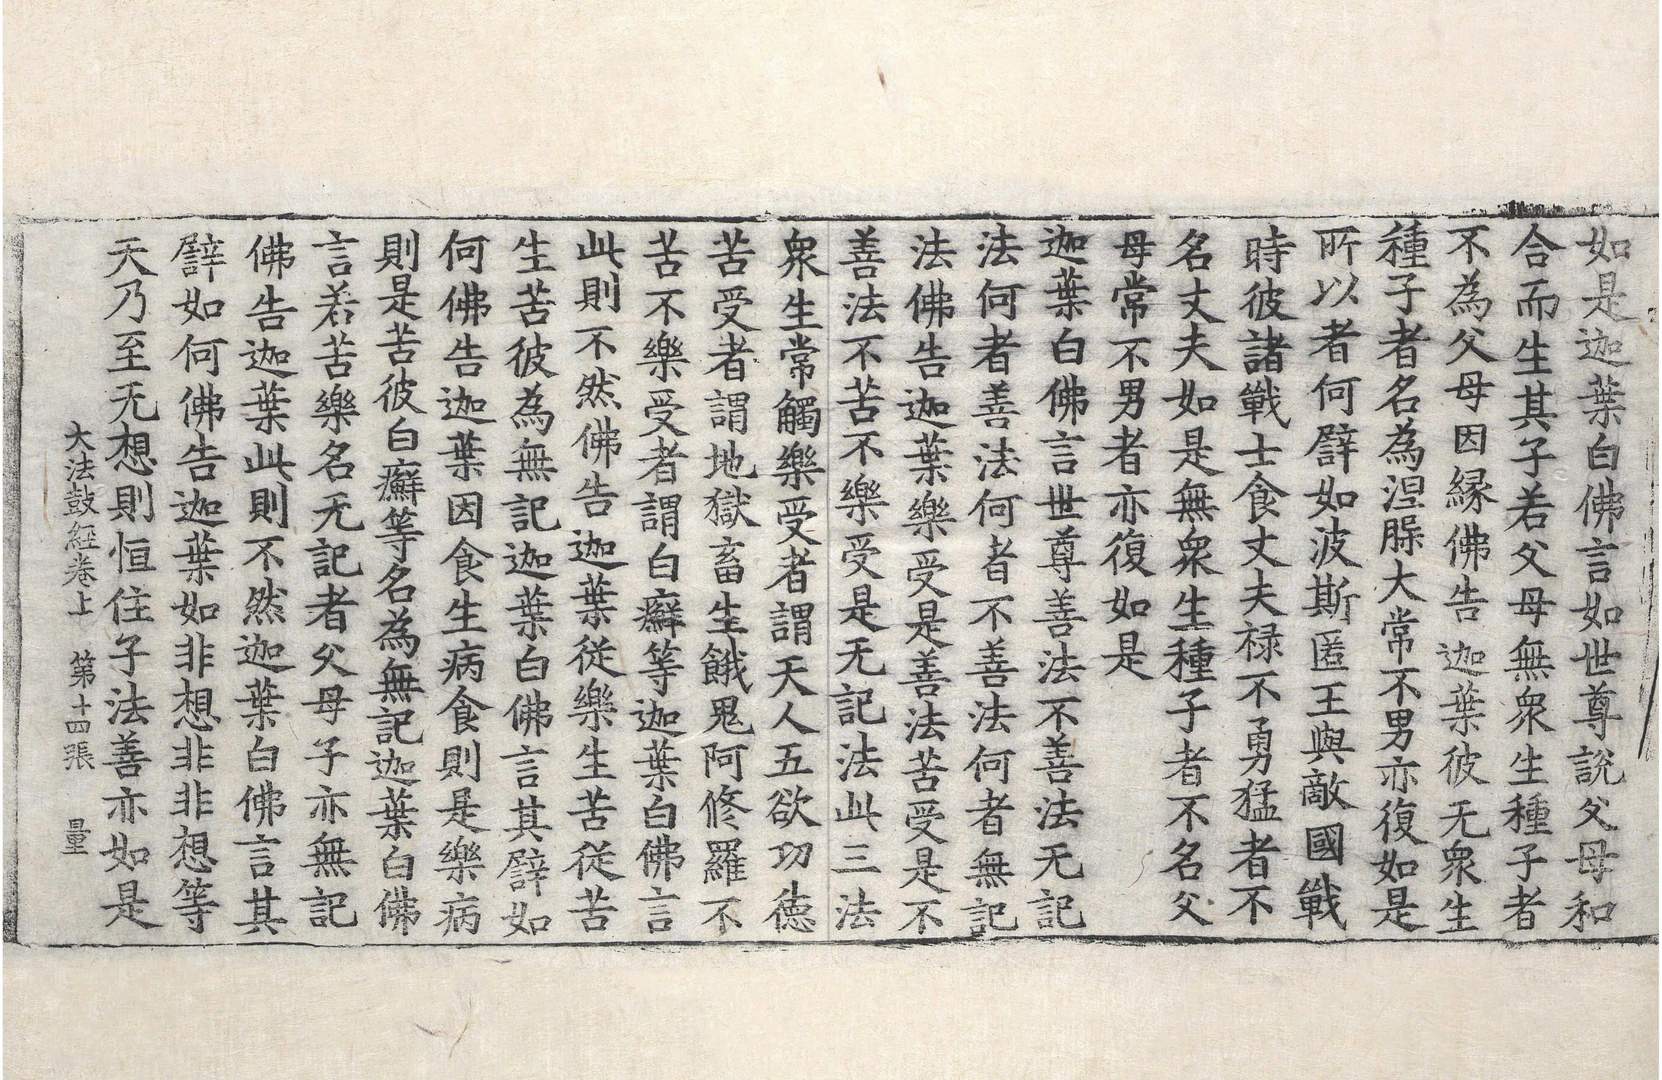 如是迦葉白佛言如世尊說父母和
合而生其子若父母無衆生種子者
不為父母因縁佛告迦葉彼无衆生
種子者名為涅槃大常不男亦復如是
所以者何譬如波斯匿王與敵國戰
時彼諸戰士食丈夫禄不勇猛者不
名丈夫如是無衆生種子者不名父
母常不男者亦復如是
迦葉白佛言世尊善法不善法无記
法何者善法何者不善法何者無記
法佛告迦葉樂受是善法苦受是不
善法不苦不樂受是无記法此三法
衆生常觸樂受者謂天人五欲功德
苦受者謂地獄畜生餓鬼阿修羅不
苦不樂受者謂白癬等迦葉白佛言
此則不然佛告迦葉從樂生苦從苦
生苦彼為無記迦葉白佛言其譬如
何佛告迦葉因食生病食則是樂病
則是苦彼白癬等名為無記迦葉白佛
言若苦樂名无記者父母子亦無記
佛告迦葉此則不然迦葉白佛言其
譬如何佛告迦葉如非想非非想等
天乃至无想則恒住子法善亦如是
大法鼓經卷上 第十四張 量